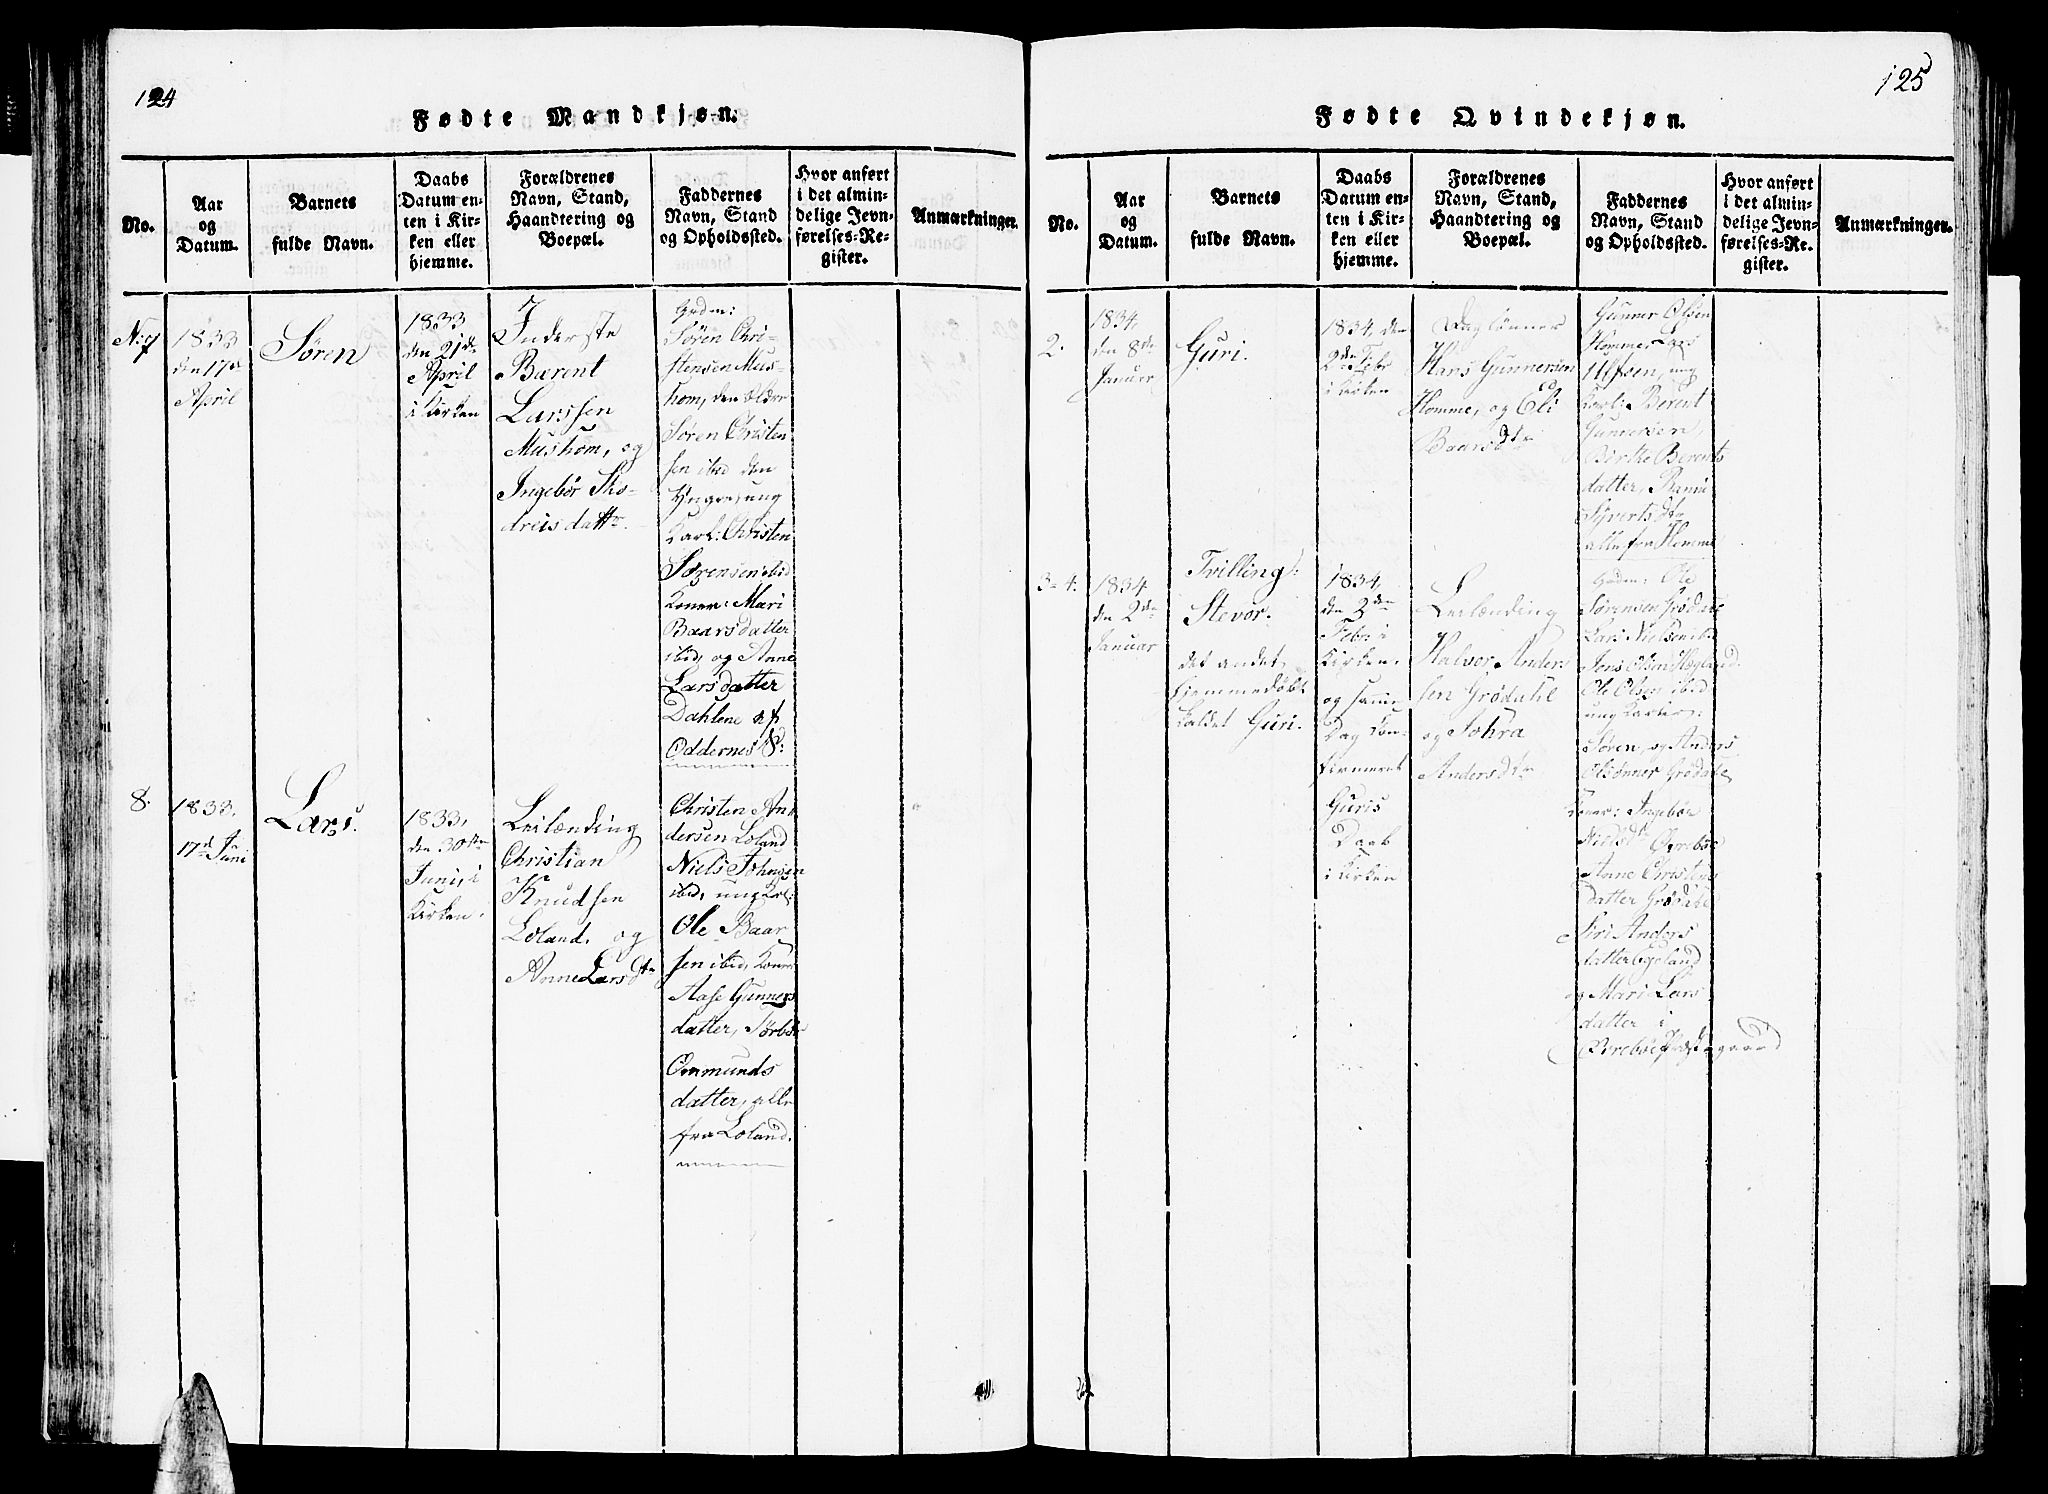 124
Fødte Mandkjøn.
No.
Aar
og
Datum.
Barnets
fulde Navn.
Daabs
Datum en-
ten i Kir-
ken eller
hjemme.
Forældrenes
Navn, Stand,
Haandtering og
Boepæl.
Faddernes
Navn, Stand
og Opholdssted.
Hvor anført
i det almin-
delige Jevn-
førelses-Re-
gister.
Anmærkninger.
No. 7
1833
den 17de
April
Søren
1833
den 21de
April
i Kirken
Inderste
Bærent
Larssen
Mushom, og
Ingebør Tho-
dreisdattr.
Gudm:
Søren Chri-
stensen Mus-
hom, den ældre
Søren Christen
sen ibid den
Yngre, ung
Karl: Christen
Sørensen ibid
Koner: Mari
Baarsdatter
ibid, og Anne
Larsdatter
Dahlene af
Oddernes S:
8.
1833.
17de Juni
Lars.
1833,
den 30te
Juni, i
Kirken.
Leilænding
Christian
Knudsen
Loland. og
Anne Larsdtr
Christen An-
dersen Loland
Niels Johnsen
ibid, ung Krl:
Ole Baar
sen ibid, Koner
Aase Gunners
datter, Sørbør
Ommunds
datter, alle
fra Loland.
125
Fødte Qvindekjøn.
No.
Aar
og
Datum.
Barnets
fulde Navn.
Daabs
Datum en-
ten i Kir-
ken eller
hjemme.
Forældrenes
Navn, Stand,
Haandtering og
Boepæl.
Faddernes
Navn, Stand
og Opholdssted.
Hvor anført
i det almin-
delige Jevn-
førelses-Re-
gister.
Anmærkninger.
2.
1834,
den 8de
Januer
Guri.
1834, den
2den Febr
i Kirken
Daglønner
Hans Gunnersen
Homme, og Eli
Baarsdtr
Gunner Olsen
Homme, Lars
Ulfsen, ung
Karl: Berent
Gunnersen,
Birthe Berents
datter,
Syvertsdtr
alle fra Homme
3-4.
1834
den 2den
Januar
Tvilling:
Stevor.
det andet,
hjemmedøbt
kaldet Guri.
1834,
den 2den
Febr i
Kirken.
og samme
Dag Con-
firmeret
Guris
Daab
i Kirken
Leilænding
Halvor Anders
sen Grødahl
og Sohra
Andersdtr
Gudm: Ole
Sørensen Grødahl
Lars Nielsen ib.
Jens Olsen Høgland
Ole Olsen ibid
ung Karler:
Søren, og Anders
Olsønner Grødahl
Koner: Ingebør
Nielsdtr Øvrebøe
Anne Christens
datter Grødahl
Siri Anders
datter Egeland
og Mari Lars
datter i
Øvrebøe Præstegaard